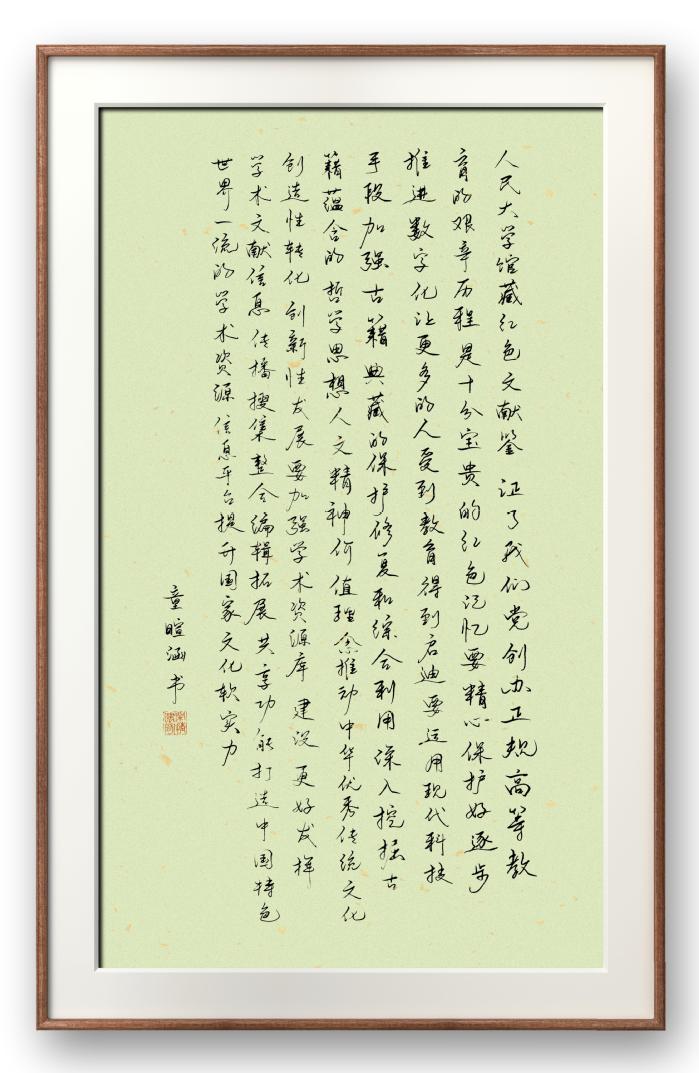 人民大学馆藏红色文献鉴证了我们党创办正规高等教
育的艰辛历程是十分宝贵的红色记忆要精心保护好逐步
推进数字化让更多的人受到教育得到启迪要运用现代科技
手段加强古籍典藏的保护修复和综合利用深入挖掘古
籍蕴含的哲学思想人文精神价值理念推动中华优秀传统文化
创造性转化创新性发展要加强学术资源库建设更好发挥
学术文献信息传播搜集整合编辑拓展共享功能打造中国特色
世界一流的学术资源信息平台提升国家文化软实力
童暄涵书